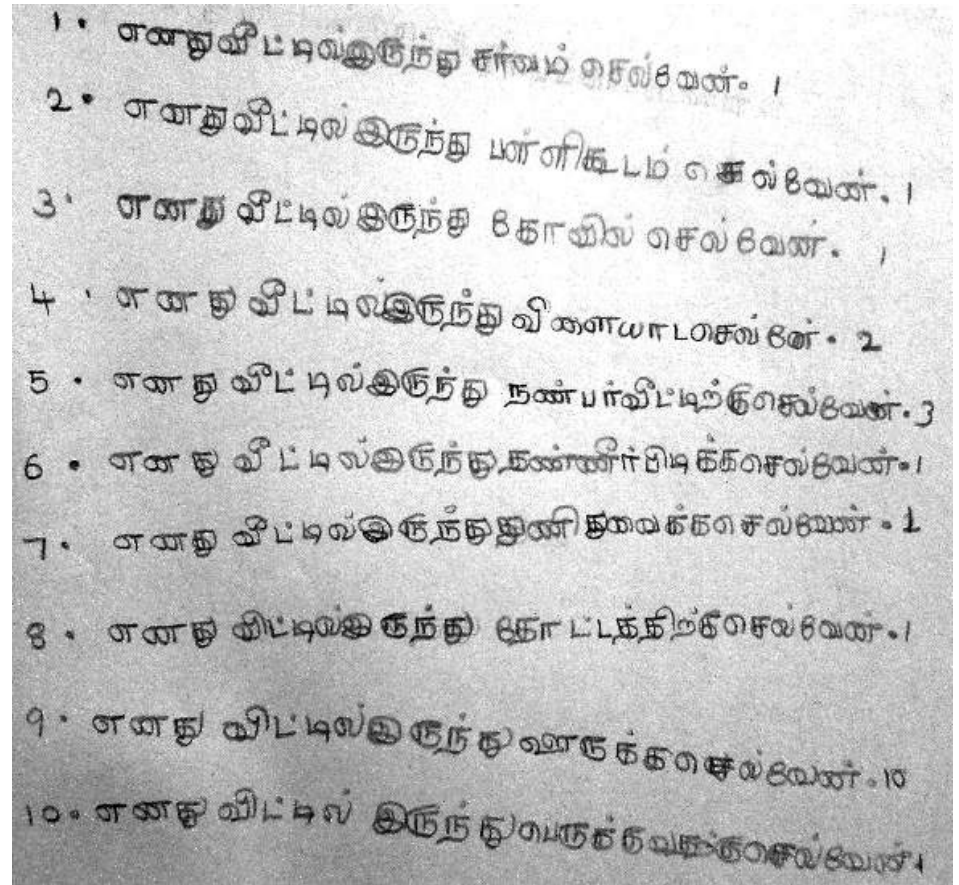 1. எனது வீட்டில் இருந்து சர்வம் செல்வேன். 1
2. எனது வீட்டில் இருந்து பள்ளிகூடம் செல்வேன். 1
3. எனது வீட்டில் இருந்து கோவில் செல்வேன். 1
4. எனது வீட்டில் இருந்து விளையாட செல்னே. 2
5. எனது வீட்டில் இருந்து நண்பர் வீட்டிற்கு செல்வேன். 3
6. எனது வீட்டில் இருந்து தண்ணீர் பிடிக்க செல்வேன். 1
7. எனது வீட்டில் இருந்து துணி துவைக்க செல்வேன். 1
8. எனது விட்டில் இருந்து தோட்டத்திற்கு செல்வேன். 1
9. எனது விட்டில் இருந்து ஊருக்க செல்வேன். 10
10. எனது விட்டில் இருந்து செல்வேன் 1